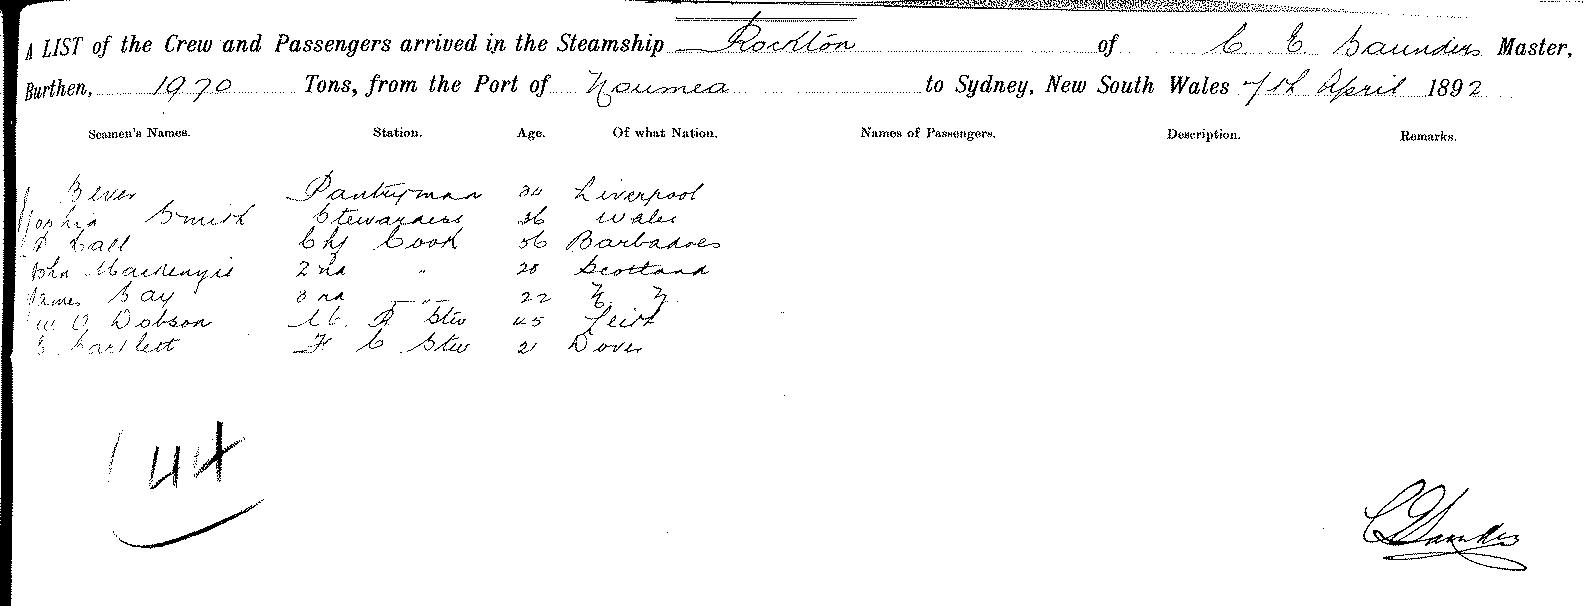 A LIST of the Crew and Passengers arrived in the Steamship Rockton of C E Saunders Master,
Burthen, 1970 Tons, from the Port of Noumea to Sydney, New South Wales 7th April 1892
Seamen's Names. Station. Age. Of what Nation. Names of Passengers. Description. Remarks.
Bever Pantryman 34 Liverpool
Sophia Smith Stewardess 36 Wales
Ball Chf Cook 36 Barbadoes
John Mackenzie 2nd " 28 Scotland
James Gay 3rd " 22 N. Z.
W O Dobson Stew 45 Leith
Bartlett F C Stew 21 Dover
44
C E Saunders